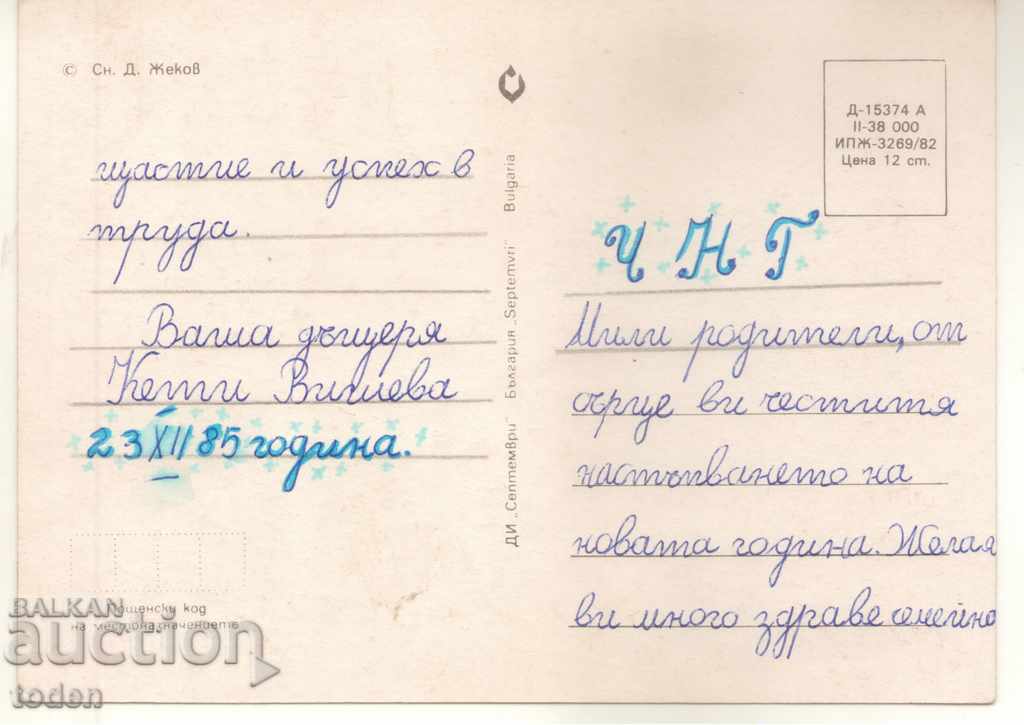 © Сн. Д. Жеков
Д-15374 А
II-38 000
ИПЖ-3269/82
Цена 12 ст.
Ч Н Г
Мили родители, от
сърце ви честитя
настъпването на
новата година. Желая
ви много здраве семейно
щастие и успех в
труда.
Ваша дъщеря
Кети
23 XII 85 година.
ДИ „Септември" България „Septemvri" Bulgaria
Пощенски код
на местоназначението
BALKAN
auction
toden